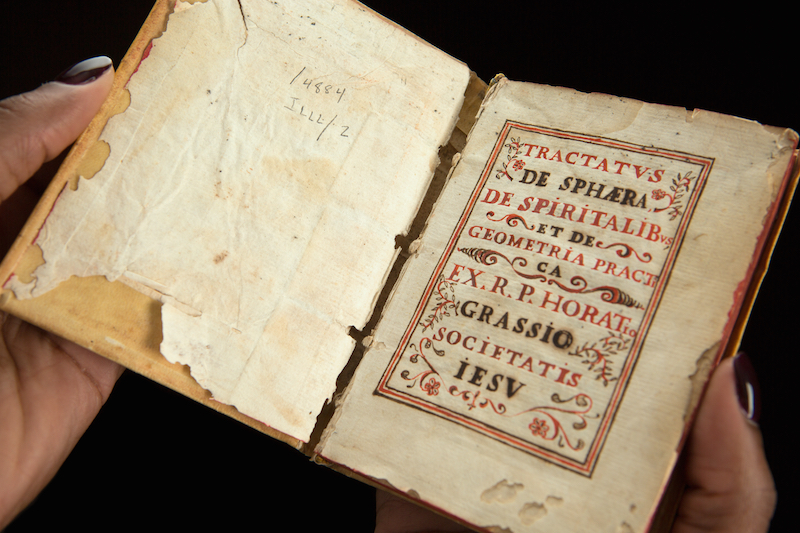 14884
ILLL/2
TRACTATVS
DE SPHÆRA,
DE SPIRITALIBvs
ET DE
GEOMETRIA PRACTI
CA
EX. R. P. HORATio
GRASSIO
SOCIETATIS
IESV